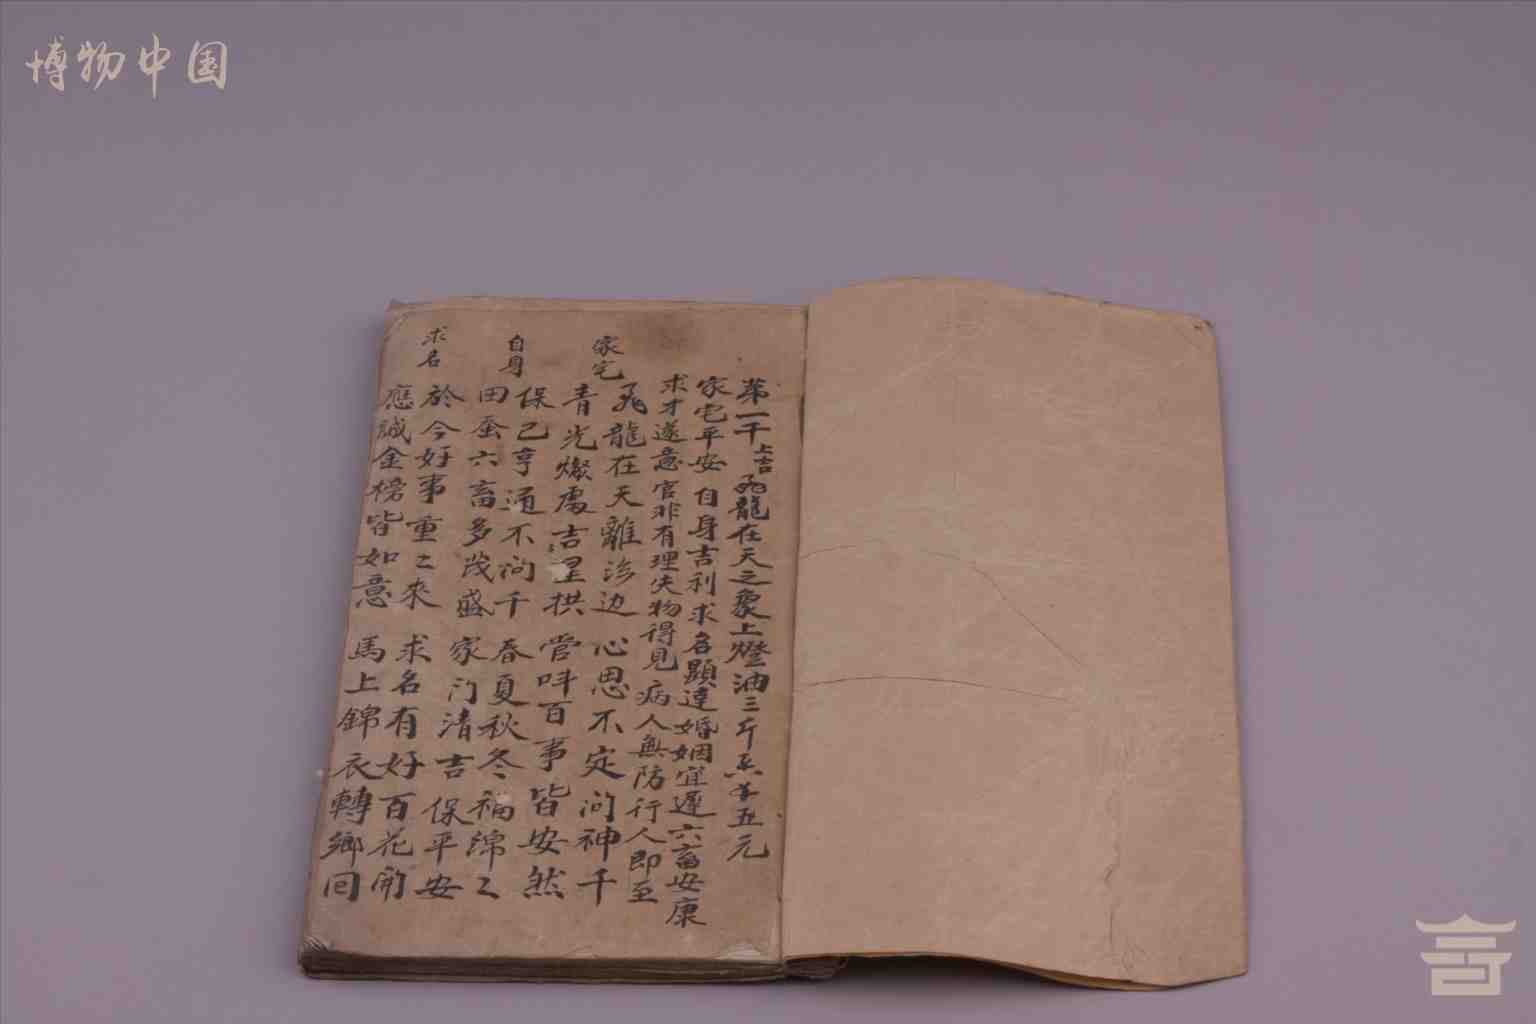 博物中国
第一千上吉飛龍在天之象上燈油三斤五元
家宅平安 自身吉利求名顯達婚姻宜遲六畜安康
求才遂意官非有理失物得見病人無防行人即至
家宅
飛龍在天離海边 心思不定问神千
青光燦處吉星拱 营呌百事皆安然
自身
保己亨通不问千 春夏秋冬福綿〻
田蚕六畜多茂盛 家门清吉保平安
求名
於今好事重〻來 求名有好百花開
應誠金榜皆如意 馬上錦衣轉鄉回